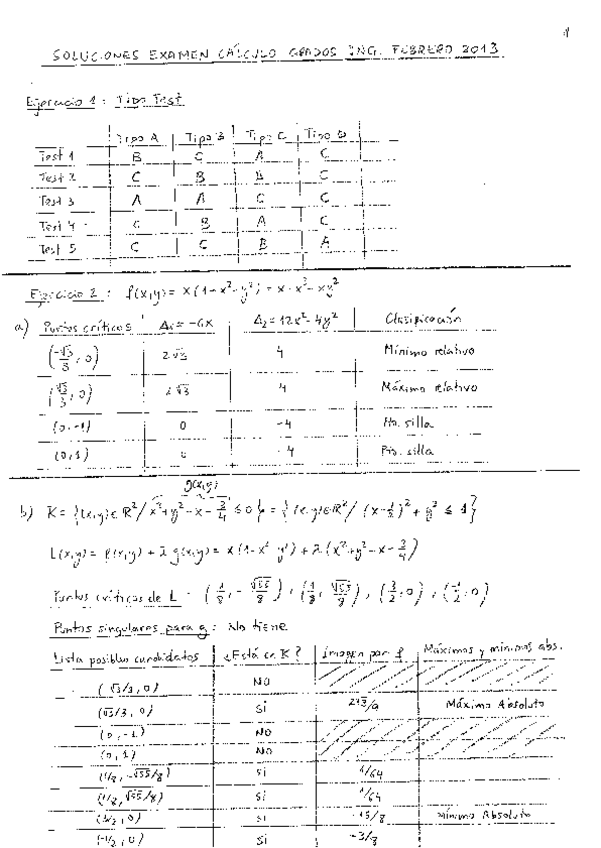 1
SOLUCIONES EXAMEN CÁLCULO GRADOS ING. FEBRERO 2013
Ejercicio 1: Tipo Test
Tipo A Tipo B Tipo C Tipo D
Test 1 B C A C
Test 2 C B C
Test 3 A A C C
Test 4 C B A C
Test 5 C C B A
Ejercicio 2: f(x,y) = x(1-x²-y²) = x-x³-xy²
a) Puntos críticos Δ₁=-6x Δ₂=12x²-4y² Clasificación
(-√3/3, 0) 2√3 4 Mínimo relativo
(√3/3, 0) 2√3 4 Máximo relativo
(0,-1) 0 -4 Pto. silla
(0,1) 0 -4 Pto. silla
g(x,y)
b) K = {(x,y)∈R² / x²+y²-x-3/4 ≤ 0} = {(x,y)∈R² / (x-1/2)²+y² ≤ 1}
L(x,y) = f(x,y) + λ g(x,y) = x(1-x²-y²) + λ(x²+y²-x-3/4)
Puntos críticos de L = (1/8, -√55/8), (1/8, √55/8), (3/2, 0), (-1/2, 0)
Puntos singulares para g: No tiene
Lista posibles candidatos ¿Está en K? Imagen por f Máximos y mínimos abs.
(√3/3, 0) NO
(√3/3, 0) SI 2√3/9 Máximo Absoluto
(0,-1) NO
(0,1) NO
(1/8, -√55/8) SI 1/64
(1/8, √55/8) SI 1/64
(3/2, 0) SI -15/8 Mínimo Absoluto
(-1/2, 0) SI -3/8